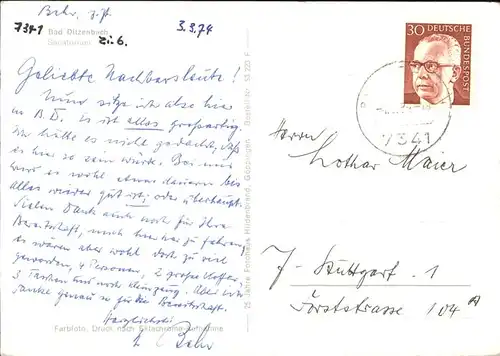 Behr, z. Zt.
7341
3.9.74
Bad Ditzenbach
Sanatorium
Zi. 6.
Geliebte Nachbarsleute!
Nun sitze ich also hier
in B.D. es ist alles großartig.
Wir hätten es nicht gedacht, daß
es hier so sein würde. Bei mir
wird es wohl etwas dauern bis
alles wieder gut ist, oder überhaupt.
Vielen Dank auch noch für Ihre
Bereitschaft, mich hierher zu fahren,
es wären aber wohl doch zu viel
geworden, 4 Personen, 2 große Koffer,
3 Taschen und noch Kleinzeug. Aber ich
danke genau so für die Bereitschaft.
Herzlichst
Behr
Farbfoto, Druck nach Ektachrome-Aufnahme
25 Jahre Fotohaus Hildenbrand, Göppingen
Bestell-Nr.
30 DEUTSCHE
BUNDESPOST
7341
Herrn
Lothar Maier
7 - Stuttgart - 1
Forststrasse 104 A